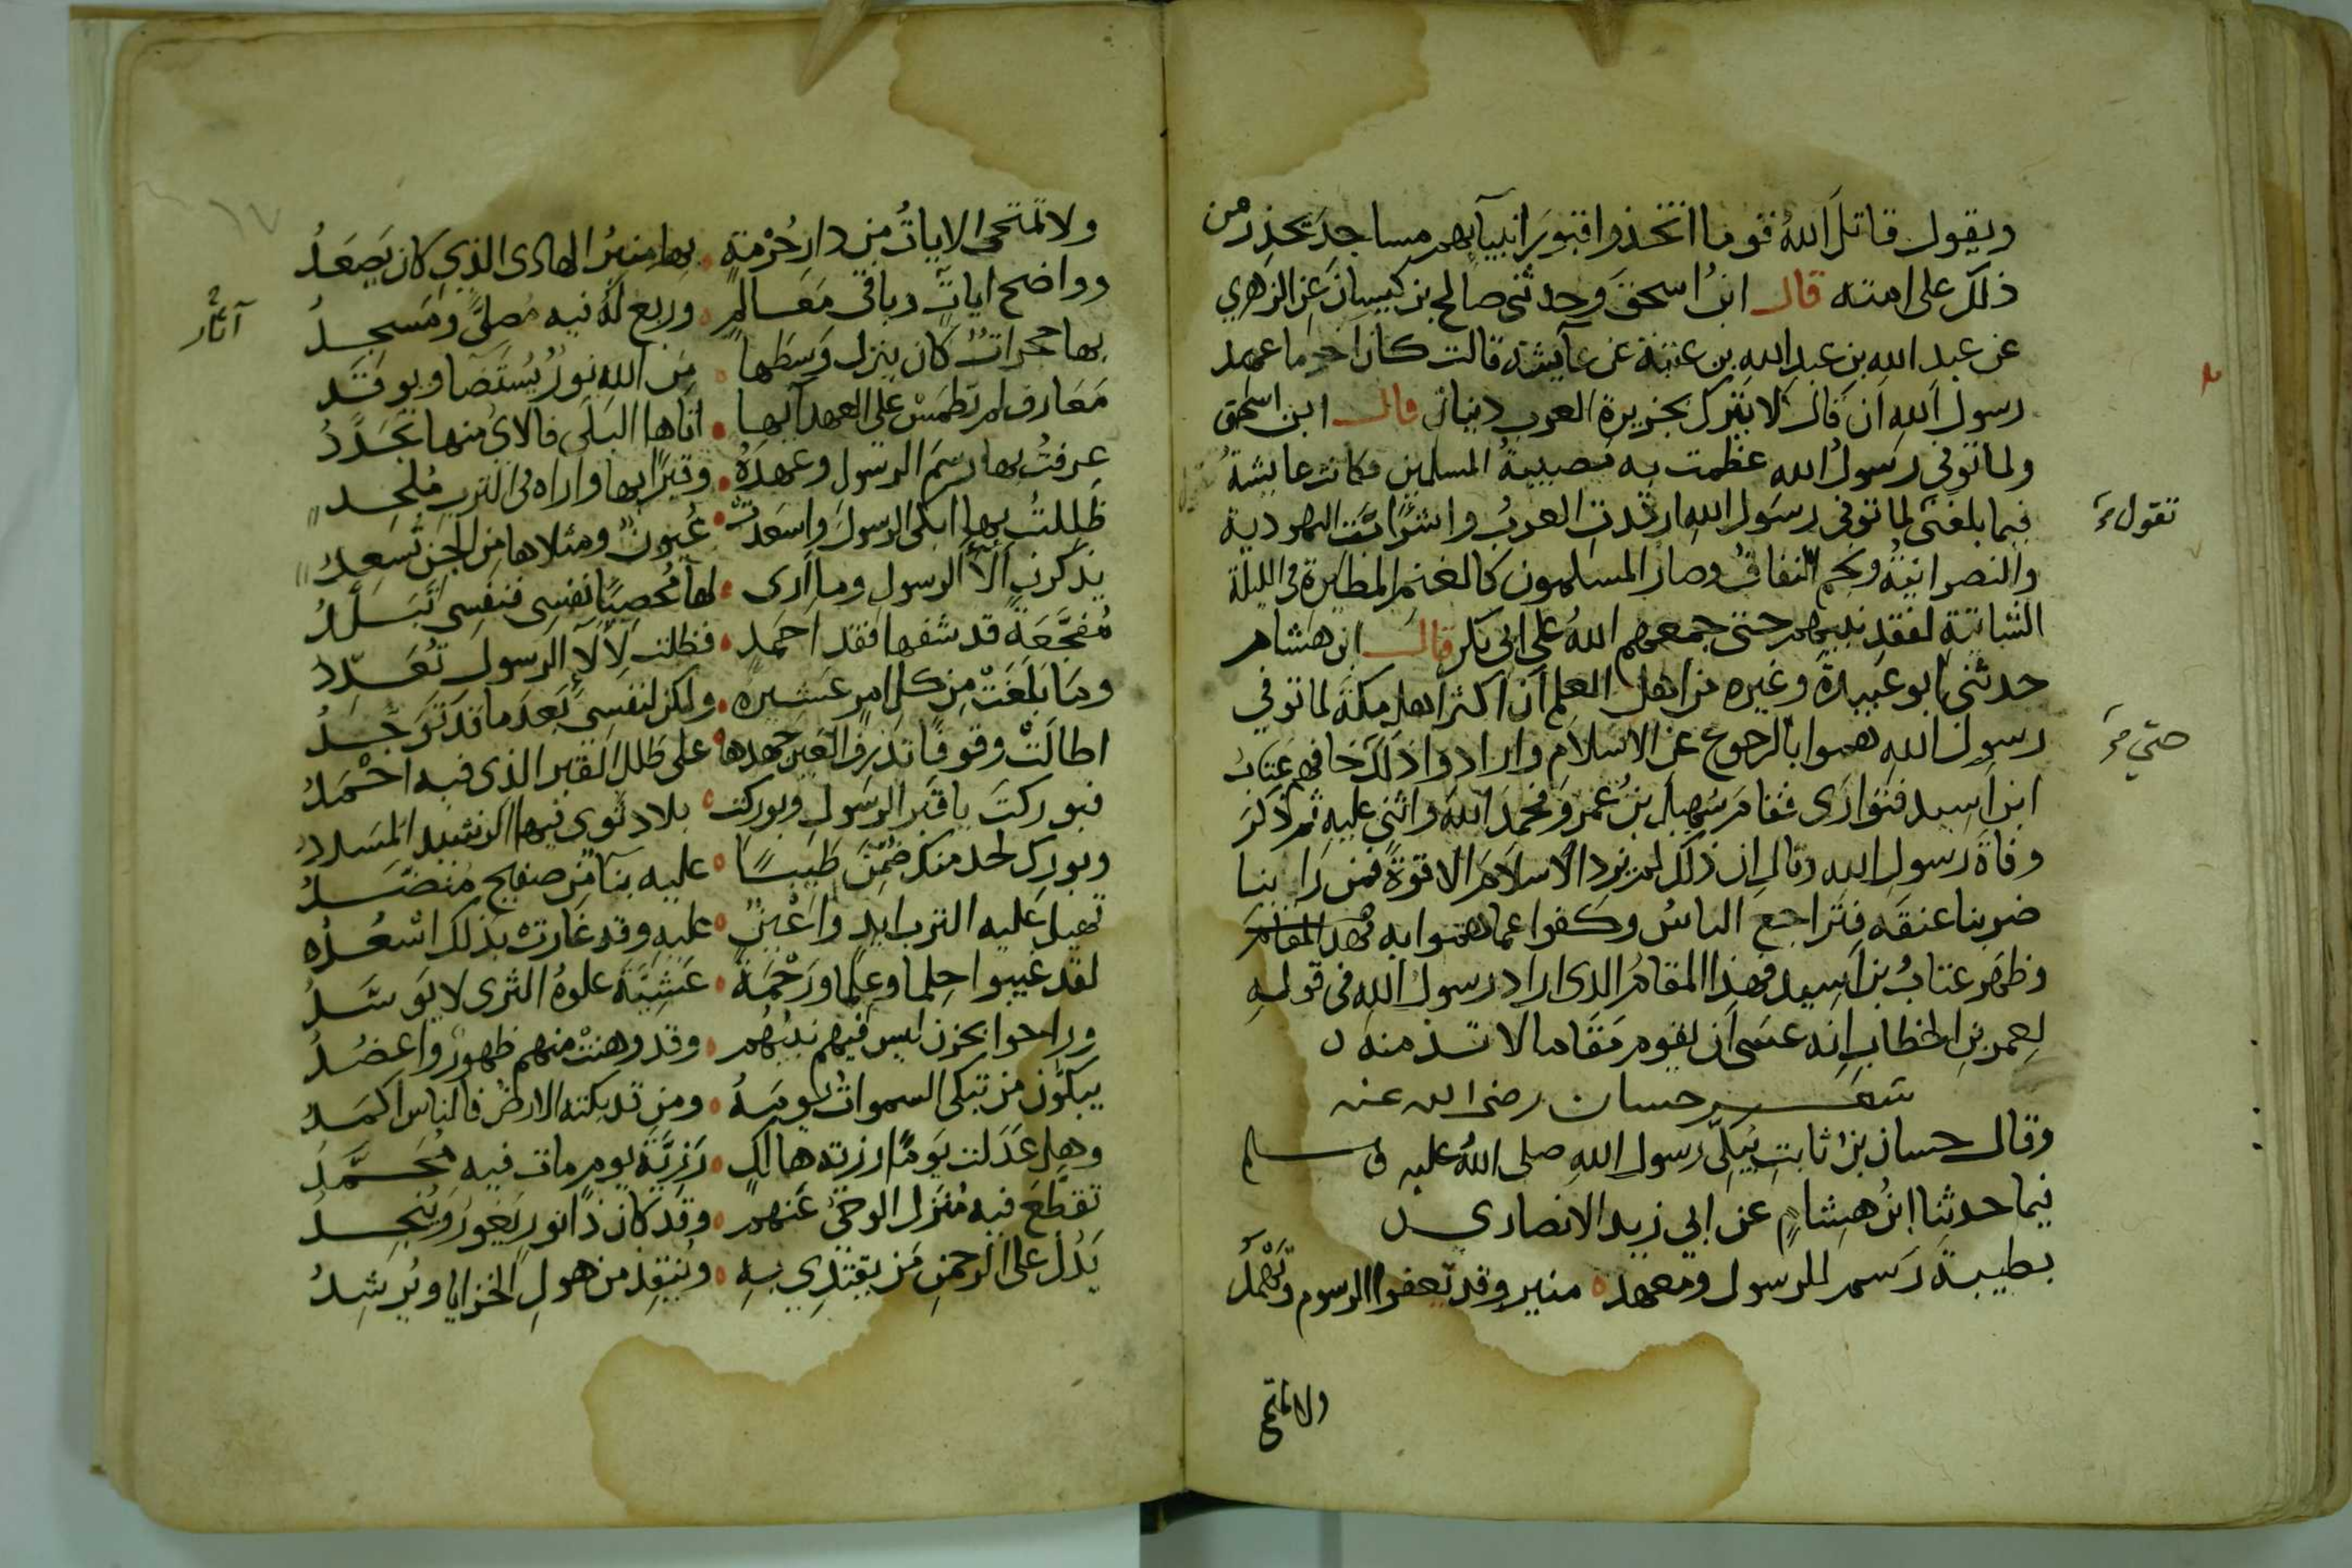 ويقول قاتل الله قوما اتخذوا قبور انبيآيهم مساجد يحذر من
ذلك على امته قال ابن اسحق وحدثنى صالح بن كيسان عن الزهري
عن عبد الله بن عبد الله بن عتبة عن عآيشة قالت كان اخر ما عهد
رسول الله ان قال لا يترك بجزيرة العرب دينان قال ابن اسحق
ولما توفي رسول الله عظمت به مصيبة المسلمين فكانت عايشة
تقول
فيما بلغنى لما توفى رسول الله ارتدت العرب واشرابت اليهودية
والنصرانية ونجم النفاق وصار المسلمون كالغنم المطيرة فى الليلة
الشاتية لفقد نبيهم حتى جمعهم الله على ابى بكر قال ابن هشام
حدثنى ابو عبيدة وغيره من اهل العلم ان اكثر اهل مكة لما توفي
رسول الله هموا بالرجوع عن الاسلام وارادوا ذلك خافهم عتاب
حتي
ابن اسيد فتوارى فقام سهيل بن عمرو فحمد الله واثنى عليه ثم ذكر
وفاة رسول الله وقال ان ذلك لم يزد الاسلام الا قوة فمن رابنا
ضربنا عنقه فتراجع الناس وكفوا عما هموا به فهذا المقام
وظهر عتاب بن اسيد فهذا المقام الذى اراد رسول الله فى قوله
لعمر بن الخطاب انه عسى ان يقوم مقاما لا تذمنه
شعر حسان رضى الله عنه
وقال حسان بن ثابت يبكى رسول الله صلى الله عليه وسلم
فيما حدثنا ابن هشام عن ابي زيد الانصاري
بطيبة رسم للرسول ومعهد منير وقد تعفوا الرسوم وتهمد
ولا تمتحى
ولا تمتحى الايات من دار حرمة بها منبر الهادى الذي كان يصعد
وواضح ايات وباقى معالم وربع له فيه مصلى ومسجد
آثار
بها حجرات كان ينزل وسطها من الله نور يستضا ويوقد
معارف لم تطمس على العهد آيها اتاها البلى فالاى منها تجدد
عرفت بها رسم الرسول وعهده وقبرا بها واراه فى الترب ملحد
ظللت بها ابكى الرسول واسعدت عيون ومثلاها من الجن تسعد
يذكرن آلآ الرسول وما ارى لها محصيا نفسى فنفسى تبلد
مفجعة قد شفها فقد احمد فظلت لآلآ الرسول تعدد
وما بلغت من كل امر عشيره ولكن لنفسى بعد ما قد توجد
اطالت وقوفا تذرف العين جهدها على طلل القبر الذى فيه احمد
فبوركت يا قبر الرسول وبوركت بلاد ثوى فيها الرشيد المسدد
وبورك لحد منك ضمن طيبا عليه بنآ من صفيح منضد
تهيل عليه الترب ايد واعين عليه وقد غارت بذلك اسعد
لقد غيبوا حلما وعلما ورحمة عشية علوه الثرى لا يوسد
وراحوا بحزن ليس فيهم نبيهم وقد وهنت منهم ظهور واعضد
يبكون من تبكى السموات يومه ومن قد بكته الارض فالناس اكمد
وهل عدلت يوما رزية هالك رزية يوم مات فيه محمد
تقطع فيه منزل الوحي عنهم وقد كان ذا نور يغور وينجد
يدل على الرحمن من يقتدي به وينقذ من هول الخزايا ويرشد